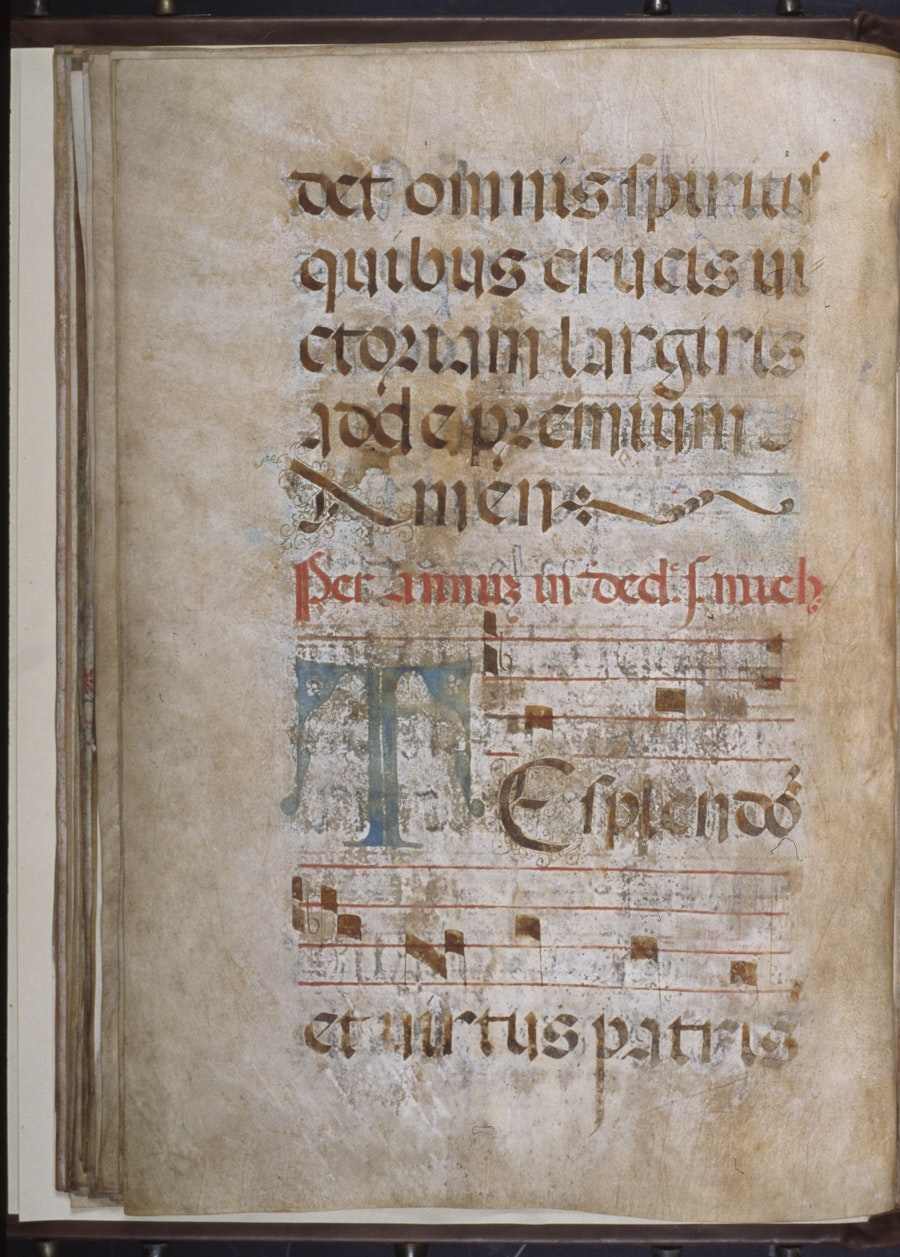 det omnis spiritus
quibus crucis ui
ctoriam largiris
adde premium
Amen
Per annuz in dedi. s. mich.
TE splendor
et uirtus patris